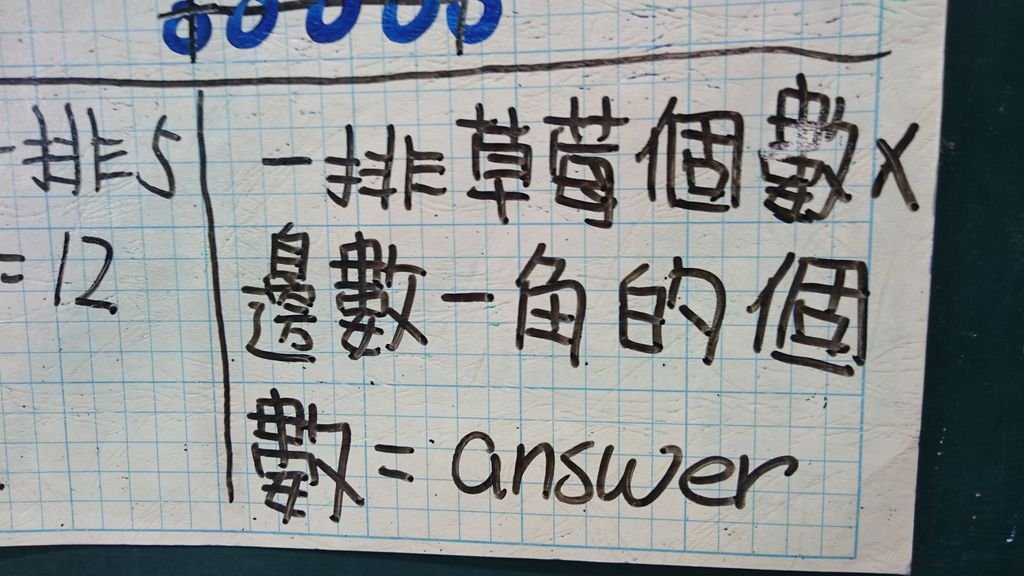 一排5
=12
一排草莓個數×
邊數-角的個
數=answer